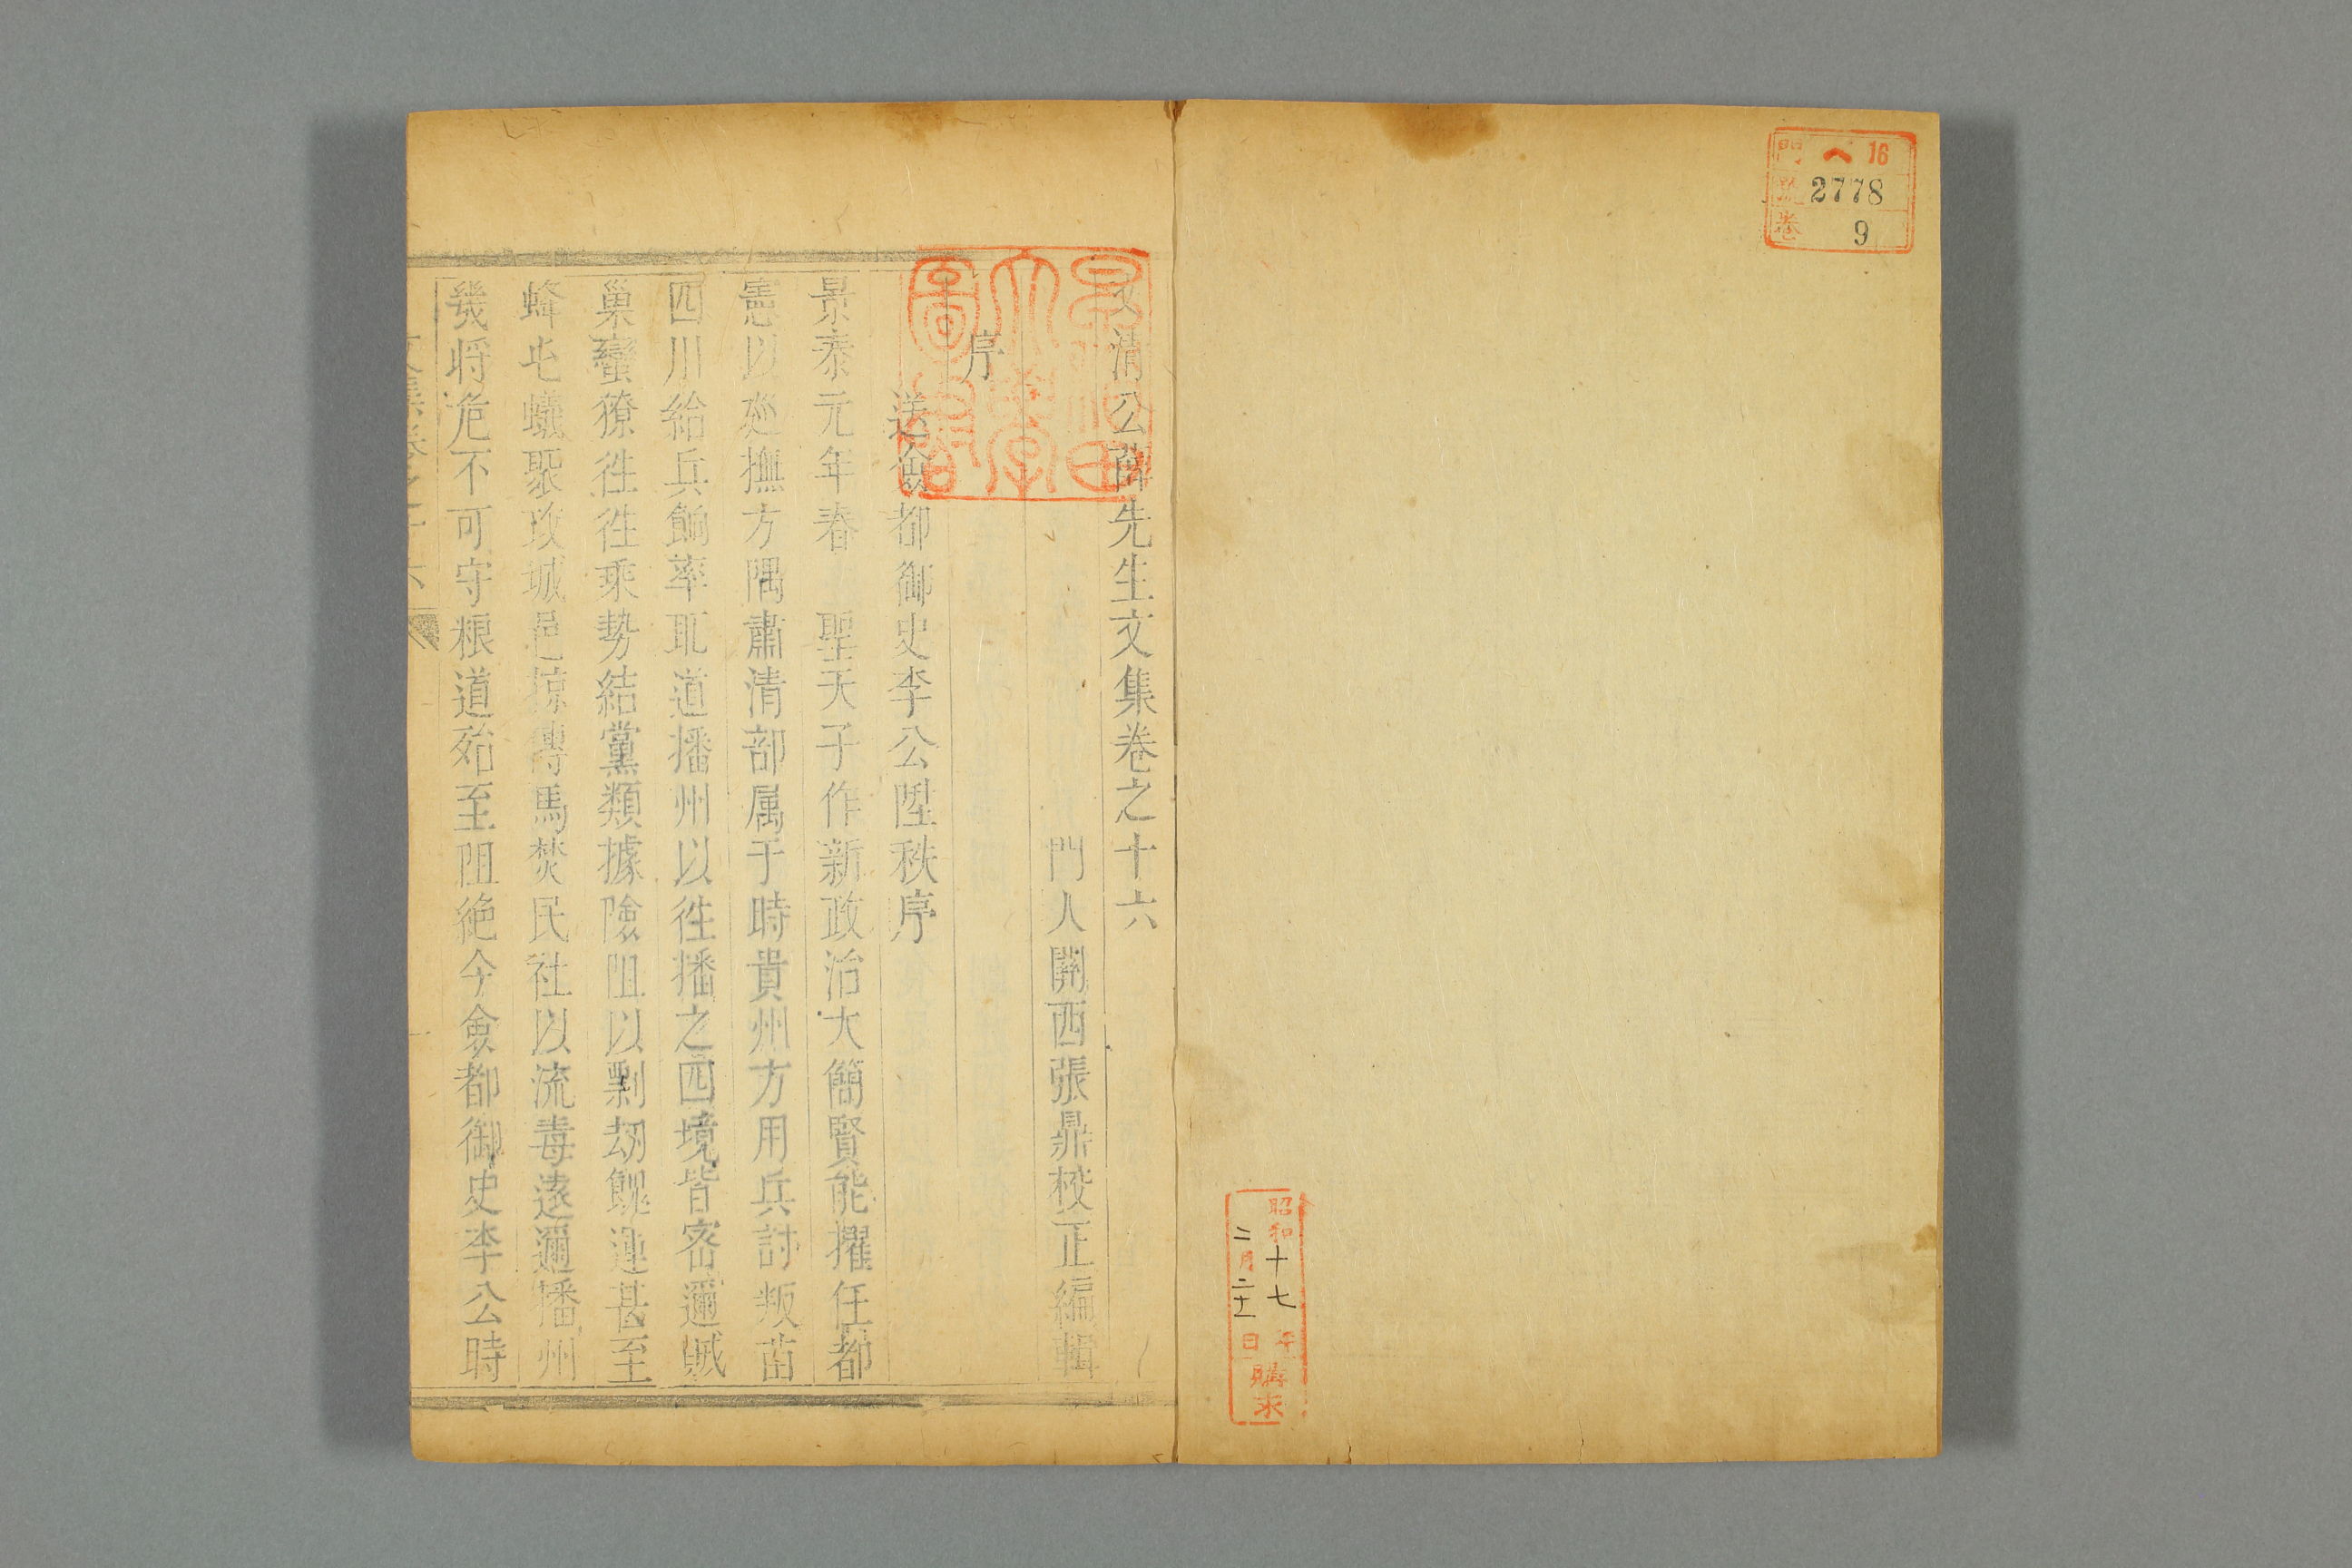 門 ヘ 16
號 2778
卷 9
昭和十七年
二月二十一日
購求
早稲田大學圖書
文清公薛先生文集卷之十六
門人關西張鼎校正編輯
序
送僉都御史李公陞秩序
景泰元年春 聖天子作新政治大簡賢能擢任都
憲以廵撫方隅肅清部属于時貴州方用兵討叛苗
四川給兵餉率取道播州以徃播之四境皆密邇賊
巢蠻獠徃徃乘勢結黨類據險阻以剽刼餽運甚至
蜂屯蟻聚攻城邑掠傳馬焚民社以流毒遠邇播州
幾将危不可守粮道殆至阻絶今僉都御史李公時
文集卷之十六